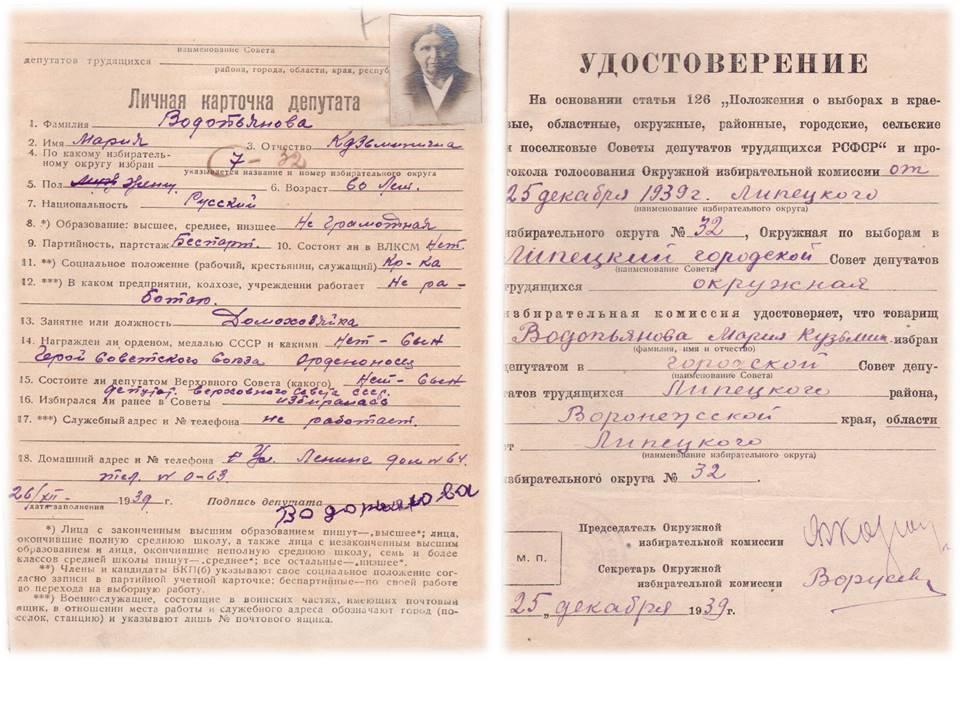 наименование Совета
депутатов трудящихся
района, города, области, края, респуб
Личная карточка депутата
1. Фамилия Водопьянова
2. Имя Мария 3. Отчество Кузьминична
4. По какому избиратель-
ному округу избран 7-32
указывается название и номер избирательного округа
5. Пол женщ. 6. Возраст 60 лет.
7. Национальность Русской
8. *) Образование: высшее, среднее, низшее Не грамотная
9. Партийность, партстаж Беспарт. 10. Состоит ли в ВЛКСМ Нет
11. **) Социальное положение (рабочий, крестьянин, служащий) Кр-ка
12. ***) В каком предприятии, колхозе, учреждении работает Не ра-
ботаю.
13. Занятие или должность Домохозяйка
14. Награжден ли орденом, медалью СССР и какими нет-сын
Герой Советского Союза Орденоносец
15. Состоите ли депутатом Верховного Совета (какого) Нет-сын
депутат. верховного совета СССР.
16. Избирался ли ранее в Советы избиралась
17. ***) Служебный адрес и № телефона не работает.
18. Домашний адрес и № телефона Ул. Ленина дом № 64.
тел. № 0-63.
26/XII- 1939 г. Подпись депутата Водопьянова
дата заполнения
*) Лица с законченным высшим образованием пишут—„высшее"; лица,
окончившие полную среднюю школу, а также лица с незаконченным высшим
образованием и лица, окончившие неполную среднюю школу, семь и более
классов средней школы пишут—„среднее"; все остальные—„низшее".
**) Члены и кандидаты ВКП(б) указывают свое социальное положение сог-
ласно записи в партийной учетной карточке: беспартийные—по своей работе
до перехода на выборную работу.
***) Военнослужащие, состоящие в воинских частях, имеющих почтовый
ящик, в отношении места работы и служебного адреса обозначают город (по-
селок, станцию) и указывают лишь № почтового ящика.
УДОСТОВЕРЕНИЕ
На основании статьи 126 „Положения о выборах в крае-
вые, областные, окружные, районные, городские, сельские
и поселковые Советы депутатов трудящихся РСФСР" и про-
токола голосования Окружной избирательной комиссии от
25 декабря 1939 г. Липецкого
(наименование избирательного округа)
избирательного округа № 32, Окружная по выборам в
Липецкий городской Совет депутатов
(наименование Совета)
трудящихся окружная
избирательная комиссия удостоверяет, что товарищ
Водопьянова Мария Кузьмин. избран
(фамилия, имя и отчество)
депутатом в городской Совет депу-
(наименование Совета)
татов трудящихся Липецкого района,
Воронежской края, области
от Липецкого
(наименование избирательного округа)
избирательного округа № 32.
Председатель Окружной
избирательной комиссии
М. П.
Секретарь Окружной
избирательной комиссии
25 „декабря 1939 г.